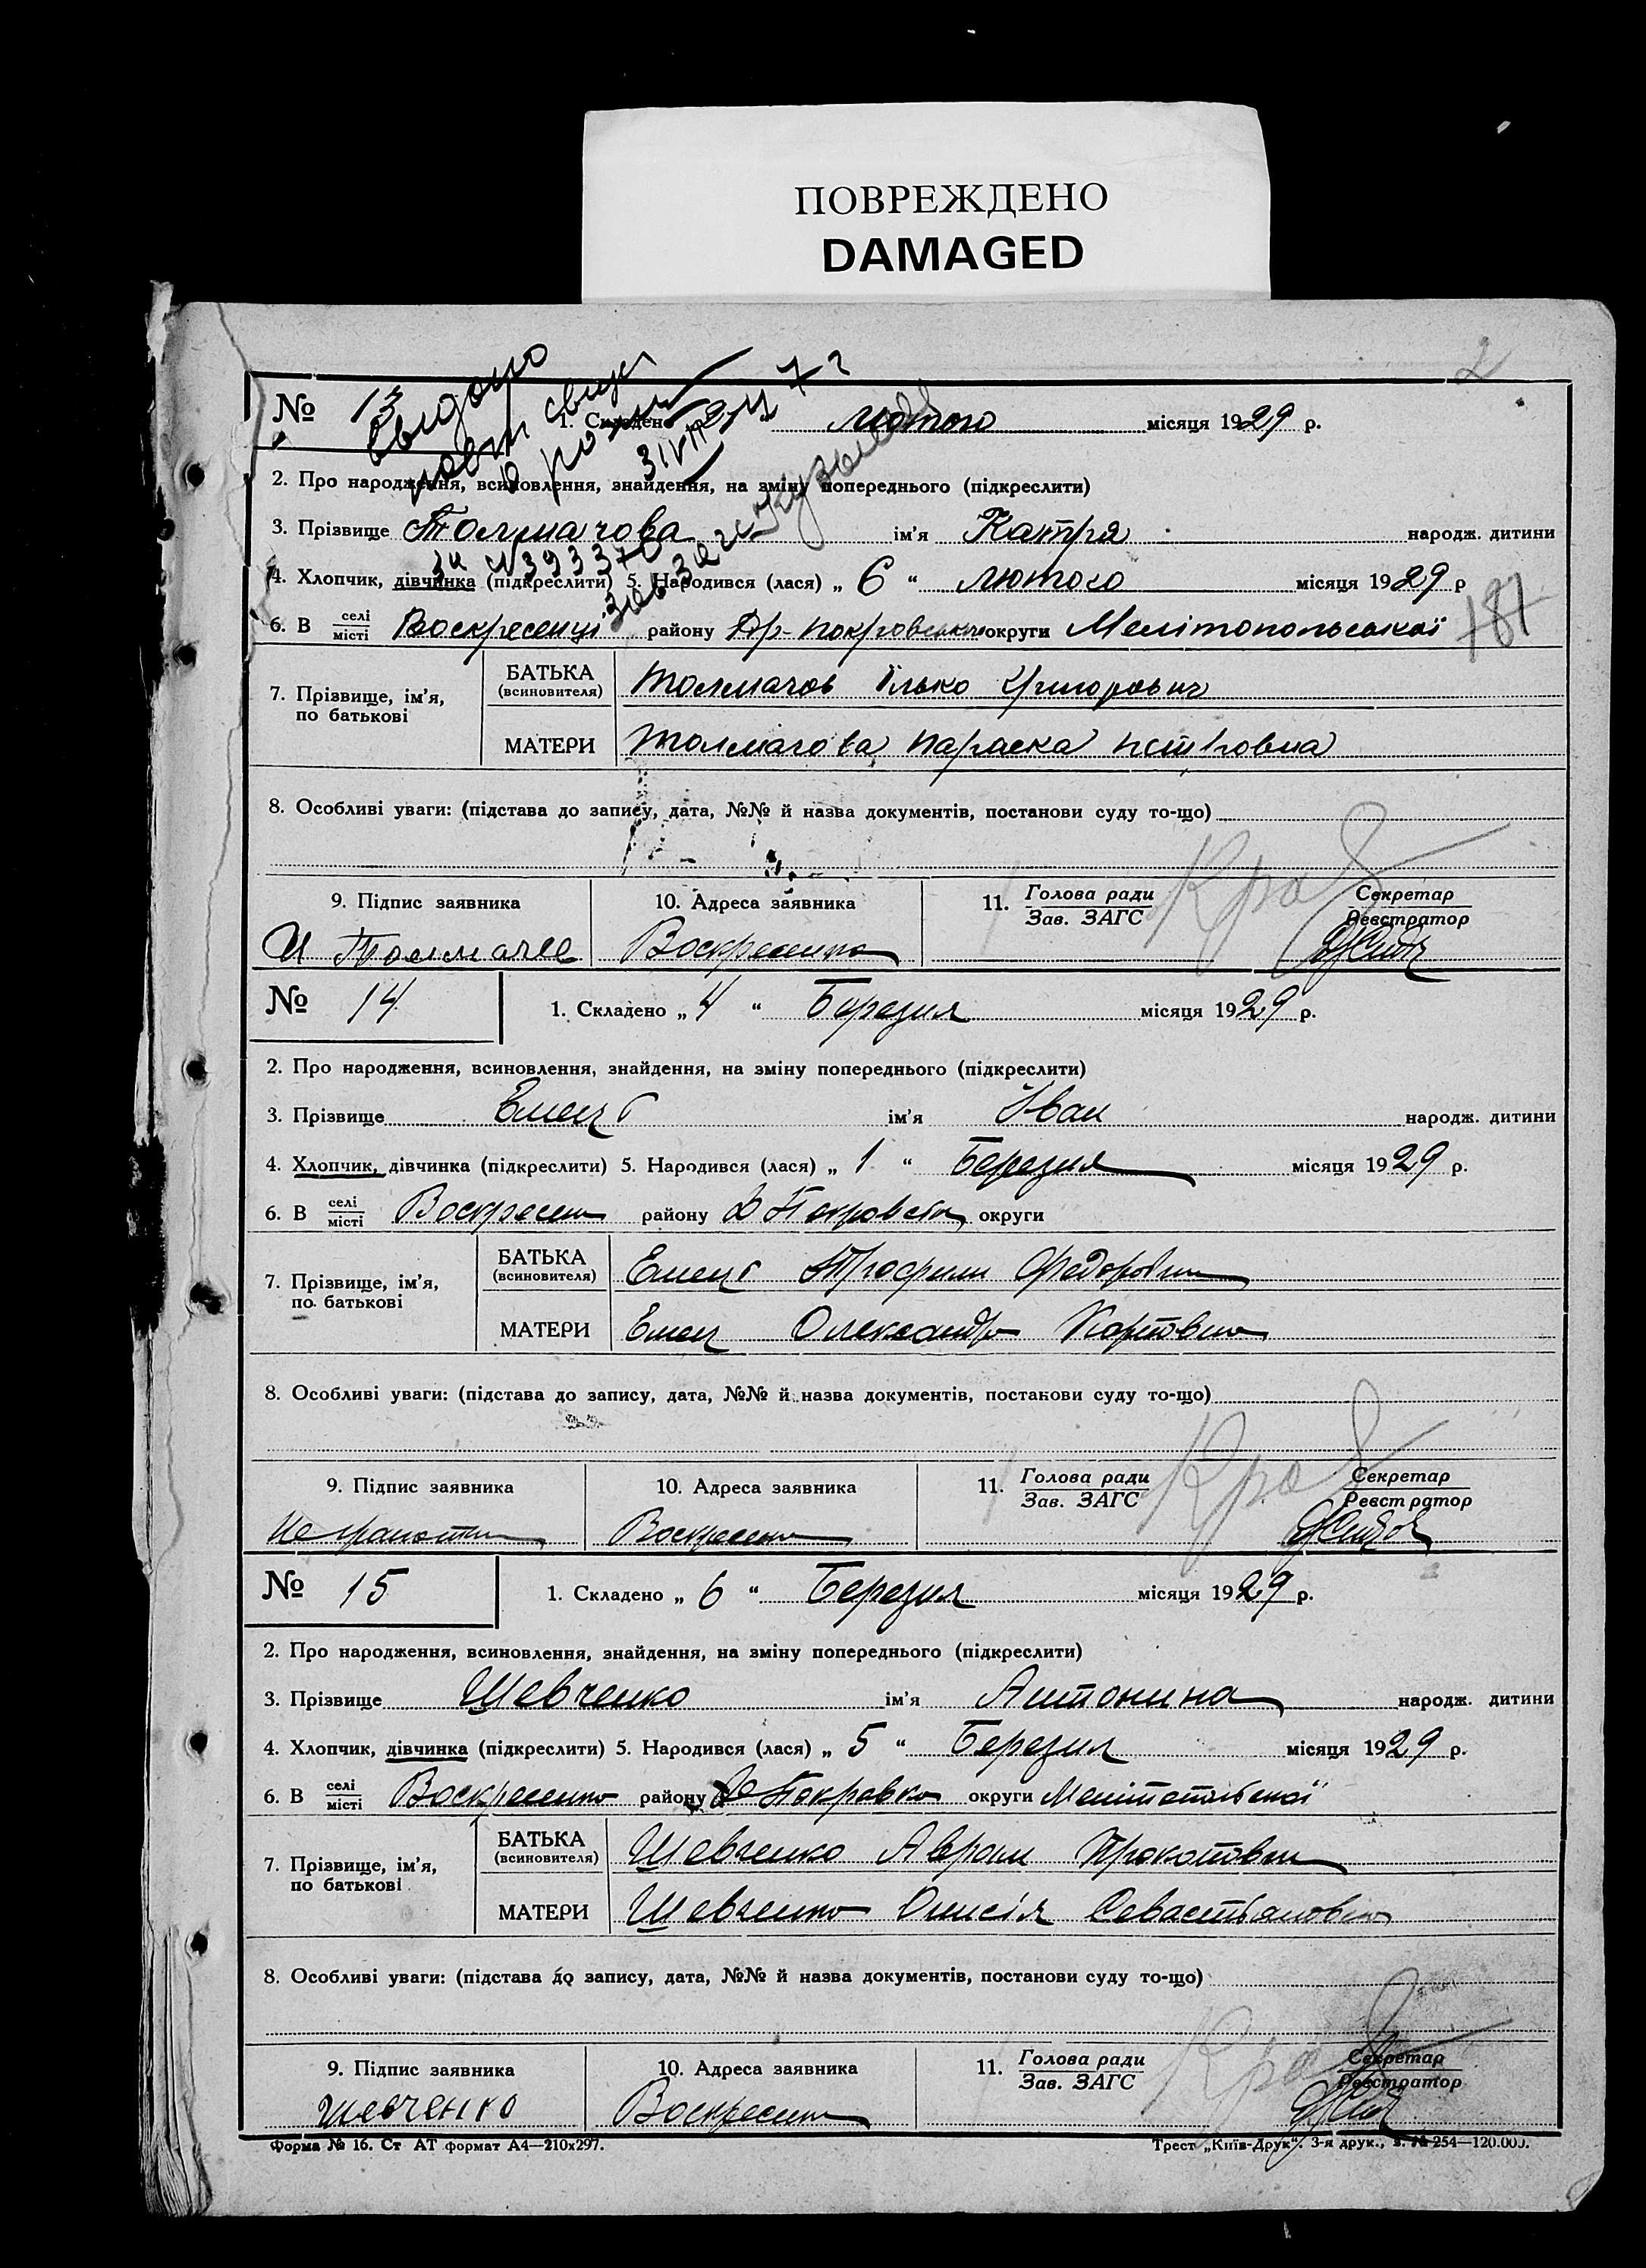 ПОВРЕЖДЕНО
DAMAGED
2
№ 13
1. Складено „ “ лютого місяця 1929 р.
2. Про народження, всиновлення, знайдення, на зміну попереднього (підкреслити)
3. Прізвище Толмачова ім'я Катря народж. дитини
4. Хлопчик, дівчинка (підкреслити) 5. Народився (лася) „ 6 “ лютого місяця 1929 р
6. В селі місті Воскресенці району Др-Покровськ округи Мелітопольської
7. Прізвище, ім'я, по батькові
БАТЬКА (всиновителя) Толмачов Ілько Григорович
МАТЕРИ Толмачова Параска Петровна
8. Особливі уваги: (підстава до запису, дата, №№ й назва документів, постанови суду то-що)
9. Підпис заявника
10. Адреса заявника
11. Голова ради Зав. ЗАГС
Секретар Реєстратор
И Толмачев
Воскресенка
№ 14
1. Складено „ 4 “ Березня місяця 1929 р.
2. Про народження, всиновлення, знайдення, на зміну попереднього (підкреслити)
3. Прізвище Емец ім'я Іван народж. дитини
4. Хлопчик, дівчинка (підкреслити) 5. Народився (лася) „ 1 “ Березня місяця 1929 р.
6. В селі місті Воскресен району Д Покровськ округи
7. Прізвище, ім'я, по батькові
БАТЬКА (всиновителя) Емец Трофим Федорович
МАТЕРИ Емец Олександра Карповна
8. Особливі уваги: (підстава до запису, дата, №№ й назва документів, постанови суду то-що)
9. Підпис заявника
10. Адреса заявника
11. Голова ради Зав. ЗАГС
Секретар Реєстратор
Воскресенка
№ 15
1. Складено „ 6 “ Березня місяця 1929 р.
2. Про народження, всиновлення, знайдення, на зміну попереднього (підкреслити)
3. Прізвище Шевченко ім'я Антонина народж. дитини
4. Хлопчик, дівчинка (підкреслити) 5. Народився (лася) „ 5 “ Березня місяця 1929 р.
6. В селі місті Воскресенка району Покровка округи Мелітопольської
7. Прізвище, ім'я, по батькові
БАТЬКА (всиновителя) Шевченко Аврам Прокопович
МАТЕРИ Шевченко Онисія Севастьяновна
8. Особливі уваги: (підстава до запису, дата, №№ й назва документів, постанови суду то-що)
9. Підпис заявника
10. Адреса заявника
11. Голова ради Зав. ЗАГС
Секретар Реєстратор
шевченко
Воскресенка
Форма № 16. Ст АТ формат А4—210х297.
Трест „Київ-Друк“. 3-я друк., з. № 254—120.000.